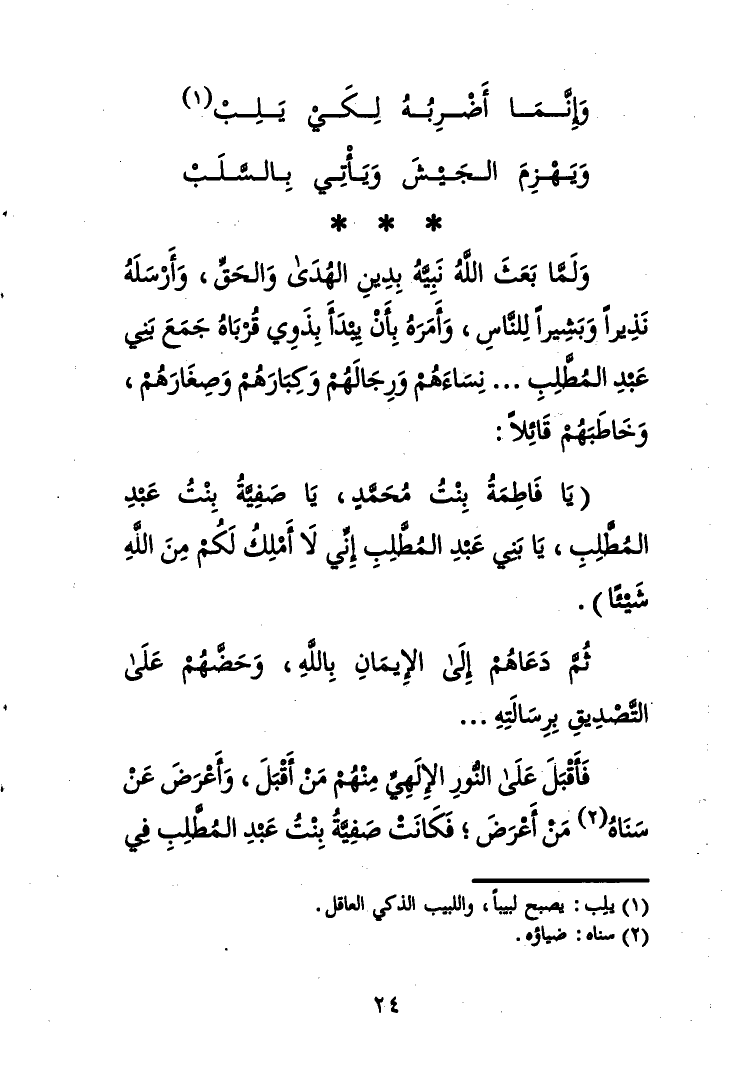 وَإِنَّمَا أَضْرِبُهُ لِكَيْ يَلِبْ(١)
وَيَهْزِمَ الجَيْشَ وَيَأْتِي بِالسَّلَبْ
* * *
وَلَمَّا بَعَثَ اللَّهُ نَبِيَّهُ بِدِينِ الهُدَىٰ وَالحَقِّ ، وَأَرْسَلَهُ
نَذِيراً وَبَشِيراً لِلنَّاسِ ، وَأَمَرَهُ بِأَنْ يَبْدَأَ بِذَوِي قُرْبَاهُ جَمَعَ بَنِي
عَبْدِ المُطَّلِبِ ... نِسَاءَهُمْ وَرِجَالَهُمْ وَكِبَارَهُمْ وَصِغَارَهُمْ ،
وَخَاطَبَهُمْ قَائِلاً :
(يَا فَاطِمَةُ بِنْتُ مُحَمَّدٍ ، يَا صَفِيَّةُ بِنْتُ عَبْدِ
المُطَّلِبِ ، يَا بَنِي عَبْدِ المُطَّلِبِ إِنِّي لَا أَمْلِكُ لَكُمْ مِنَ اللَّهِ
شَيْئًا) .
ثُمَّ دَعَاهُمْ إِلَىٰ الإِيمَانِ بِاللَّهِ ، وَحَضَّهُمْ عَلَىٰ
التَّصْدِيقِ بِرِسَالَتِهِ ...
فَأَقْبَلَ عَلَىٰ النُّورِ الإِلَهِيِّ مِنْهُمْ مَنْ أَقْبَلَ ، وَأَعْرَضَ عَنْ
سَنَاهُ(٢) مَنْ أَعْرَضَ ؛ فَكَانَتْ صَفِيَّةُ بِنْتُ عَبْدِ المُطَّلِبِ فِي
(١) يلِب : يصبح لبيباً ، واللبيب الذكي العاقل .
(٢) سناه : ضياؤه .
٢٤